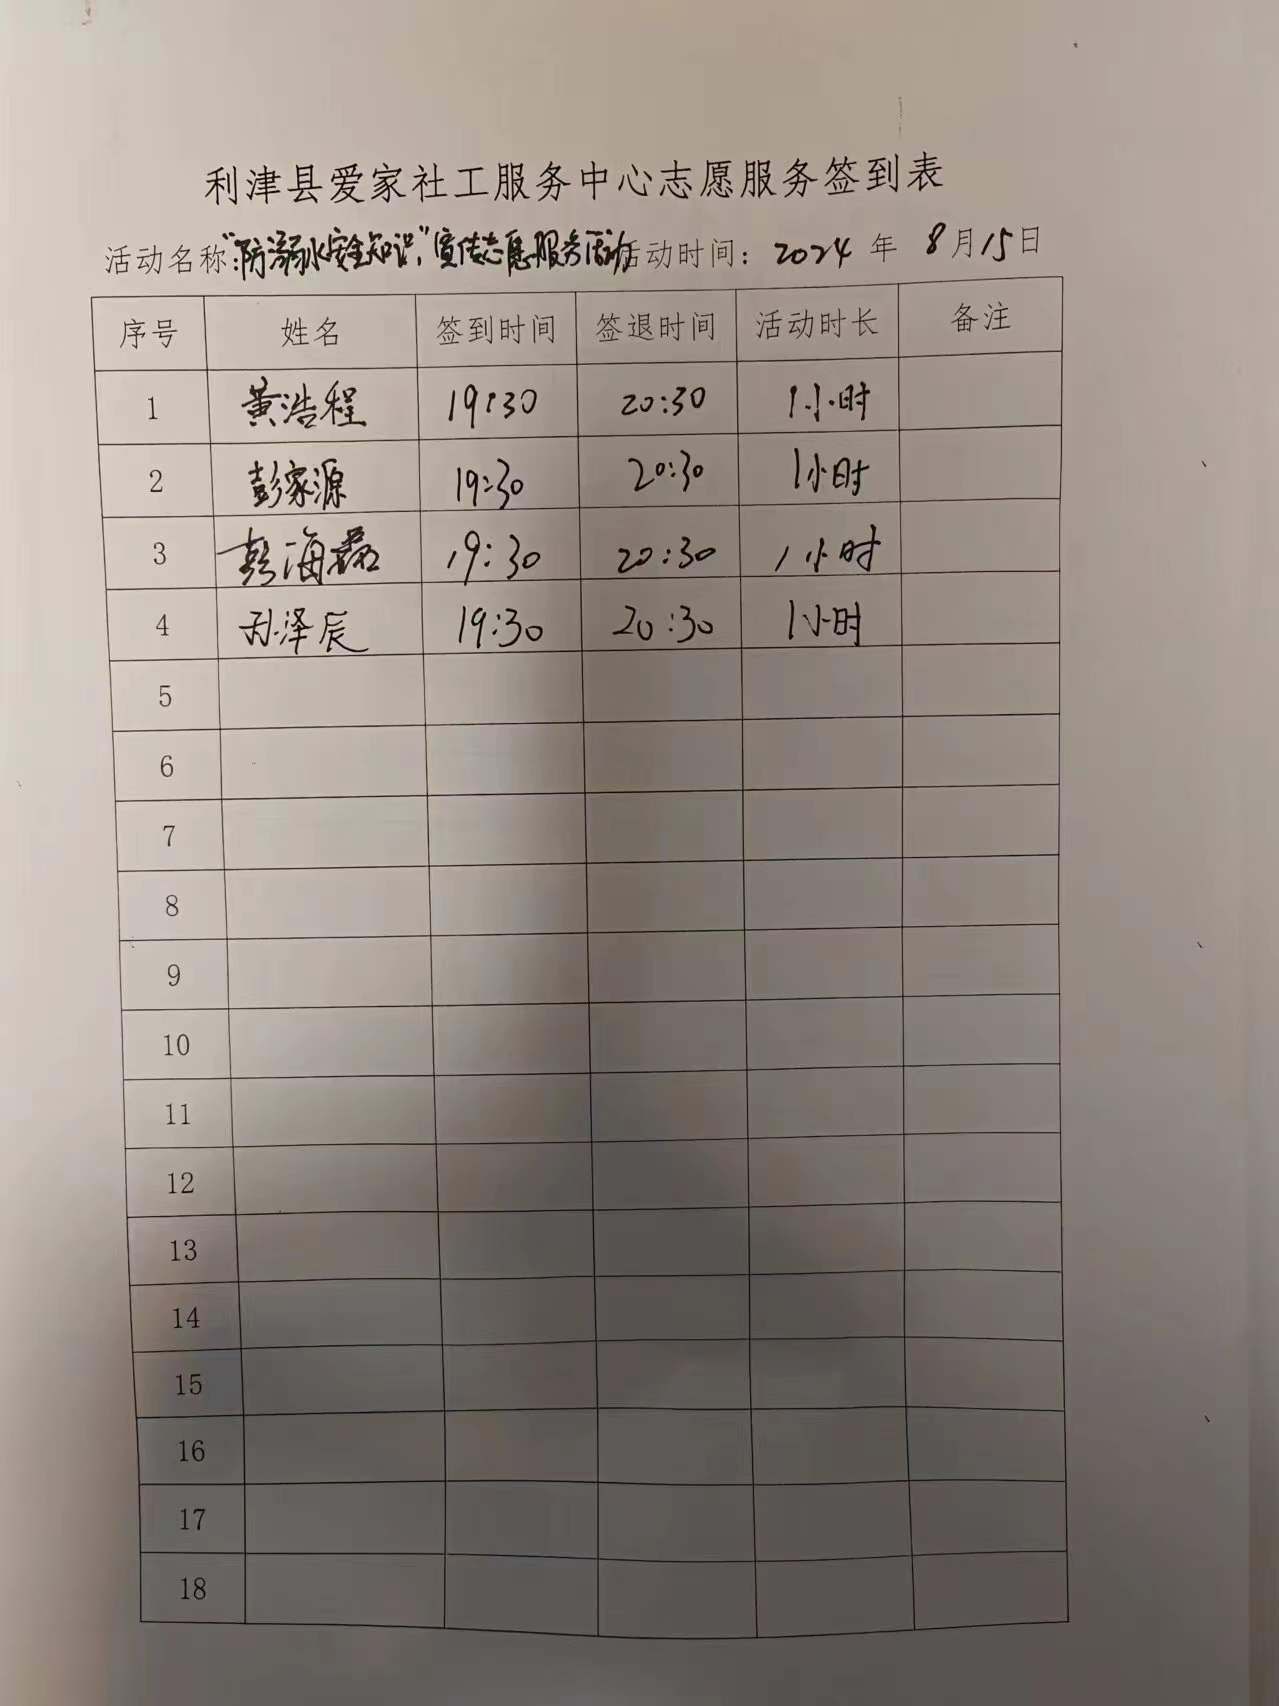 利津县爱家社工服务中心志愿服务签到表
活动名称:“防溺水安全知识”宣传志愿服务活动 活动时间: 2024 年 8 月 15 日
序号 姓名 签到时间 签退时间 活动时长 备注
1 黄浩程 19:30 20:30 1小时
2 彭家源 19:30 20:30 1小时
3 彭海 19:30 20:30 1小时
4 孙泽辰 19:30 20:30 1小时
5
6
7
8
9
10
11
12
13
14
15
16
17
18